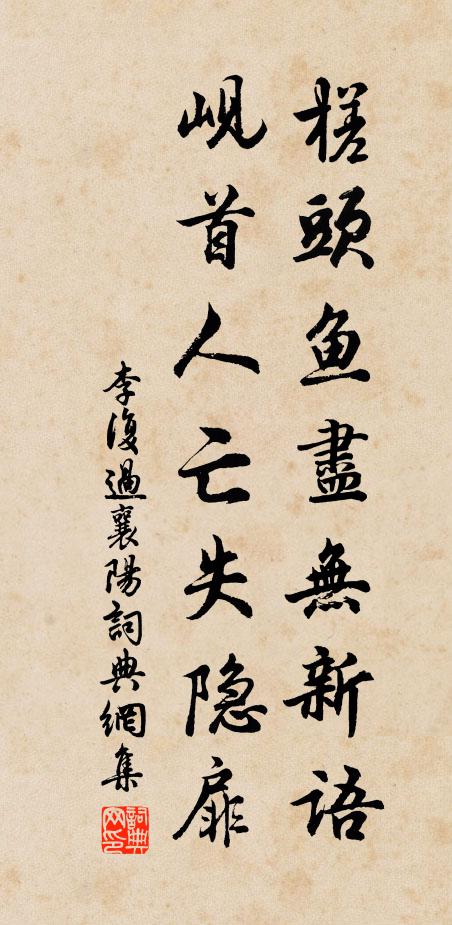 槎頭魚盡無新語
峴首人亡失隐扉
李復過襄陽詞典網集
詞典網印